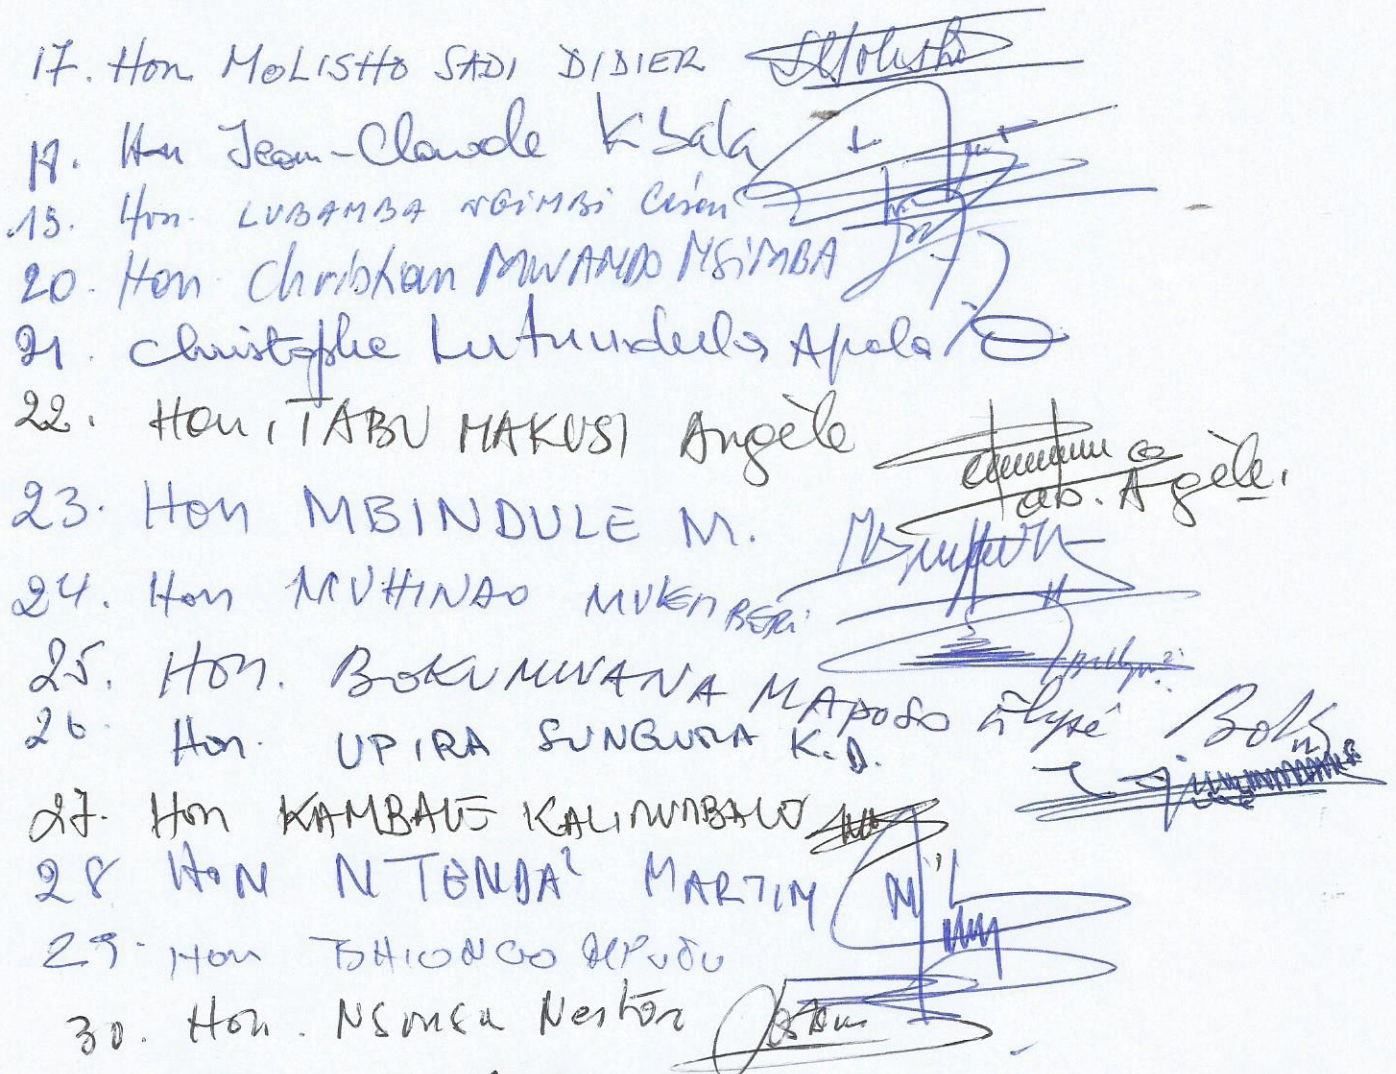 17. Hon MOLISHO SADI DIDIER
18. Hon Jean-Claude Kibala
19. Hon. LUBAMBA NGIMBI
20. Hon Christian MWANDO NSIMBA
21. Christophe Lutundula Apala
22. Hon, TABU MAKUSI Angèle
ab. Agèle.
23. Hon MBINDULE M.
24. Hon MUHINDO MUKEMBERI
25. Hon. BOKUMWANA MAPOSO
26 Hon. UPIRA SUNGURA K.D.
27. Hon KAMBALE
28 HON NTENDA MARTIN
29. Hon TSHIONGO
30. Hon. Nestor